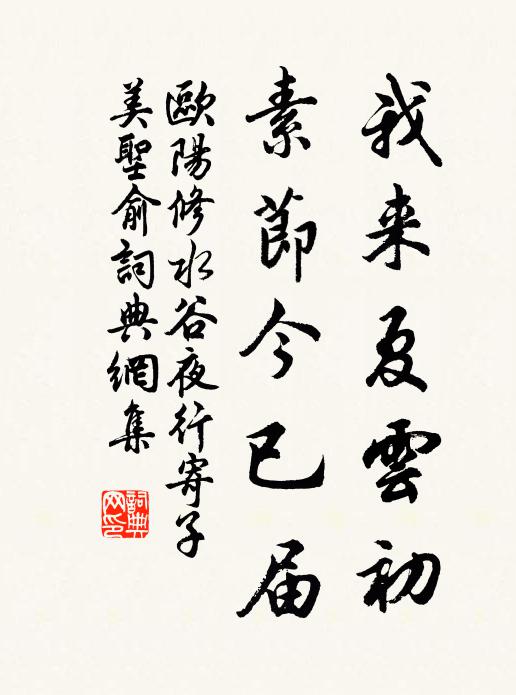 我来夏雲初
素節今已届
歐陽修水谷夜行寄子
美聖俞詞典網集
詞典网印